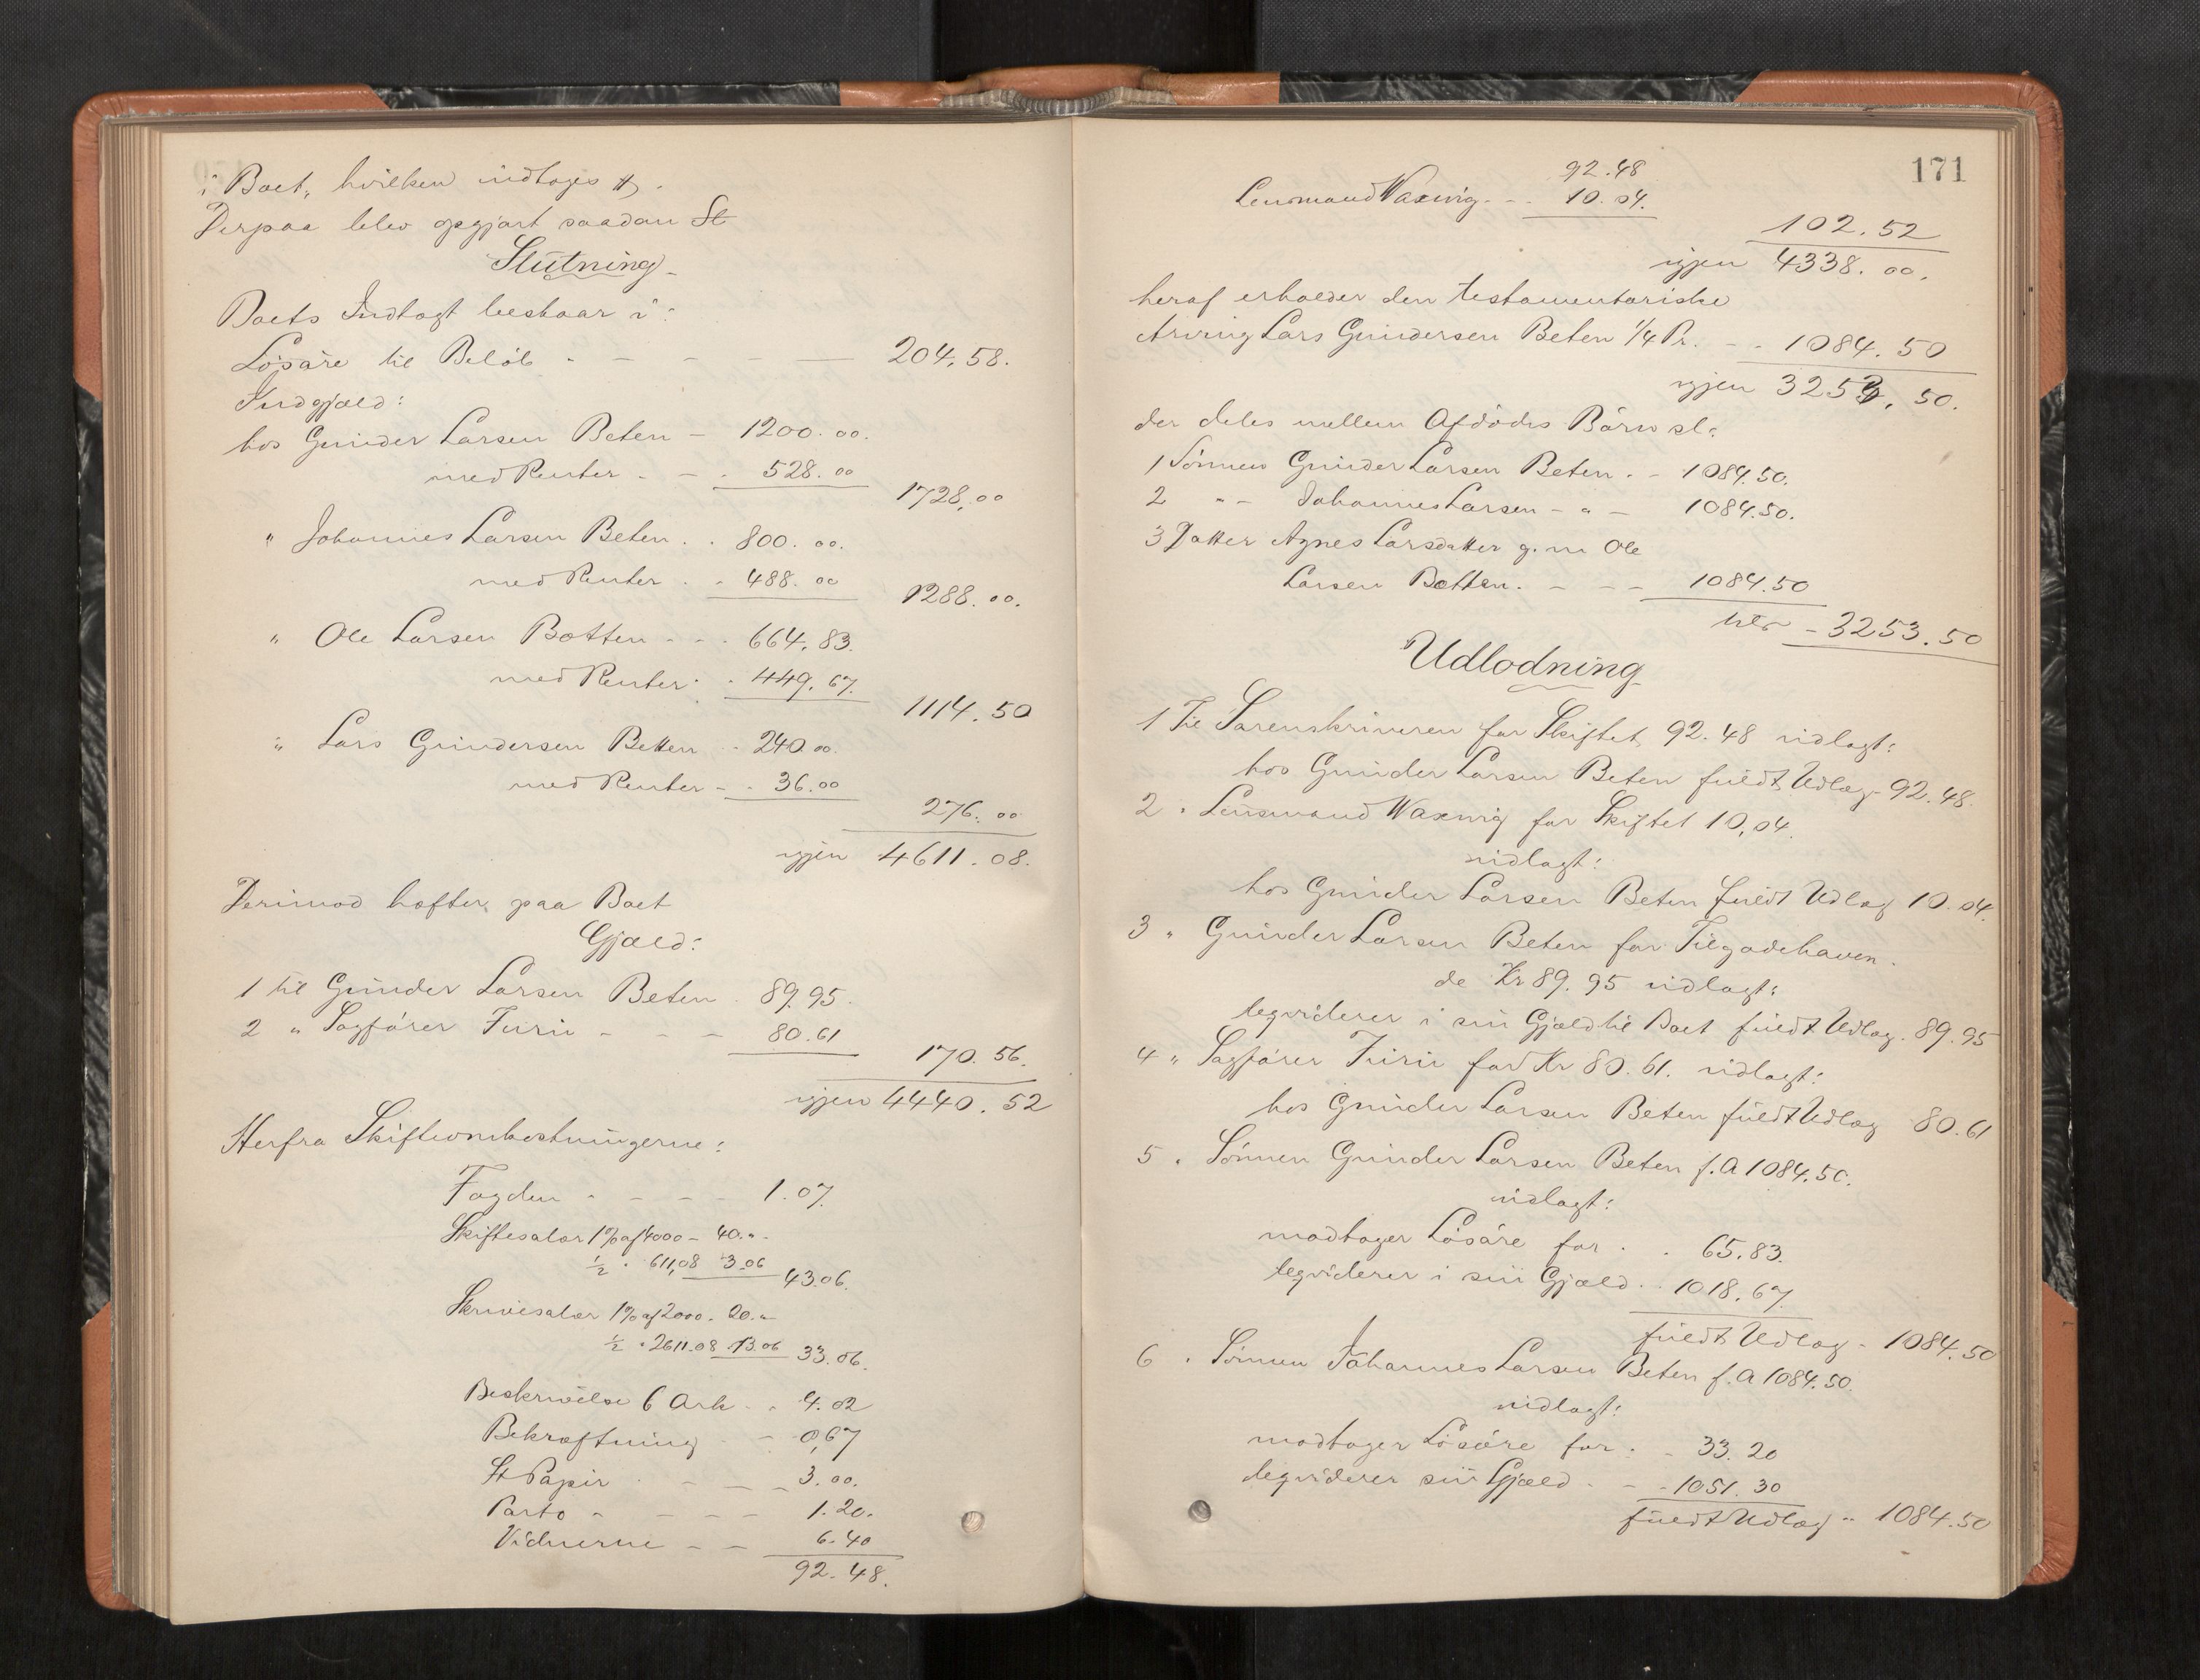 i Boet, hvilken indtoges #.
Derpaa blev opgjort saadan St
Slutning
Boets Indtægt bestaar i:
Løsøre til Beløb - - - - 204.58.
Indgjæld:
hos Gunder Larsen Beten - 1200.00.
med Renter - - 528.00
1728,00
" Johannes Larsen Beten . . 800.00.
med Renter . . 488.00
1288.00.
" Ole Larsen Botten - - . 664,83.
med Renter . . 449.67.
1114.50
" Lars Gundersen Betten . 240.00.
med Renter - . 36.00
276.00
igjen 4611.08.
Derimod hæfter paa Boet
Gjæld:
1 til Gunder Larsen Beten . 89.95.
2 " Sagfører Furu - - - 80.61
170.56.
igjen 4440.52
Herfra Skifteomkostningerne:
Fogden - - - - 1.07.
Skiftesalær 1% af 4000 - 40.".
½ " 611,08 3.06
43.06.
Skrivesalær 1% af 2000. 20."
½ " 2611.08 13.06 33.06.
Beskrivelse 6 Ark . . 4.02
Bekræftning - - 0,67
St Papir . - - - 3.00.
Porto - - - - 1.20.
Vidnerne - - 6.40
92.48.
171
92.48
Lensmand Waxwig - - 10.04.
102.52
igjen 4338.00.
heraf erholder den testamentariske
Arving Lars Gundersen Beten 1/4 Pr. - . 1084.50
igjen 3253,50.
der deles mellem Afdødes Børn sl:
1 Sønnen Gunder Larsen Beten . - 1084.50.
2 " - Johannes Larsen - " - 1084.50.
3 Datter Agnes Larsdatter g. m. Ole
Larsen Botten. - - - 1084.50
blir - 3253.50
Udlodning
1 Til Sorenskriveren for Skiftet 92.48 udlagt:
hos Gunder Larsen Beten fuldt Udlæg - 92.48.
2 " Lensmand Waxwig for Skiftet 10,04.
udlagt:
hos Gunder Larsen Beten fuldt Udlæg 10.04.
3 " Gunder Larsen Beten for Tilgodehaven-
de Kr 89.95 udlagt:
leqviderer i sin Gjæld til Boet fuldt Udlæg. 89.95
4 " Sagfører Furu for Kr 80.61. udlagt:
hos Gunder Larsen Beten fuldt Udlæg 80.61
5 " Sønnen Gunder Larsen Beten f. A 1084.50.
udlagt:
modtager Løsøre for . . 65.83.
leqviderer i sin Gjæld . . 1018.67.
fuldt Udlæg - 1084.50
6 " Sønnen Johannes Larsen Beten f. A 1084.50.
udlagt:
modtager Løsøre for . - 33.20
leqviderer sin Gjæld . - - 1051.30
fuldt Udlæg " 1084.50